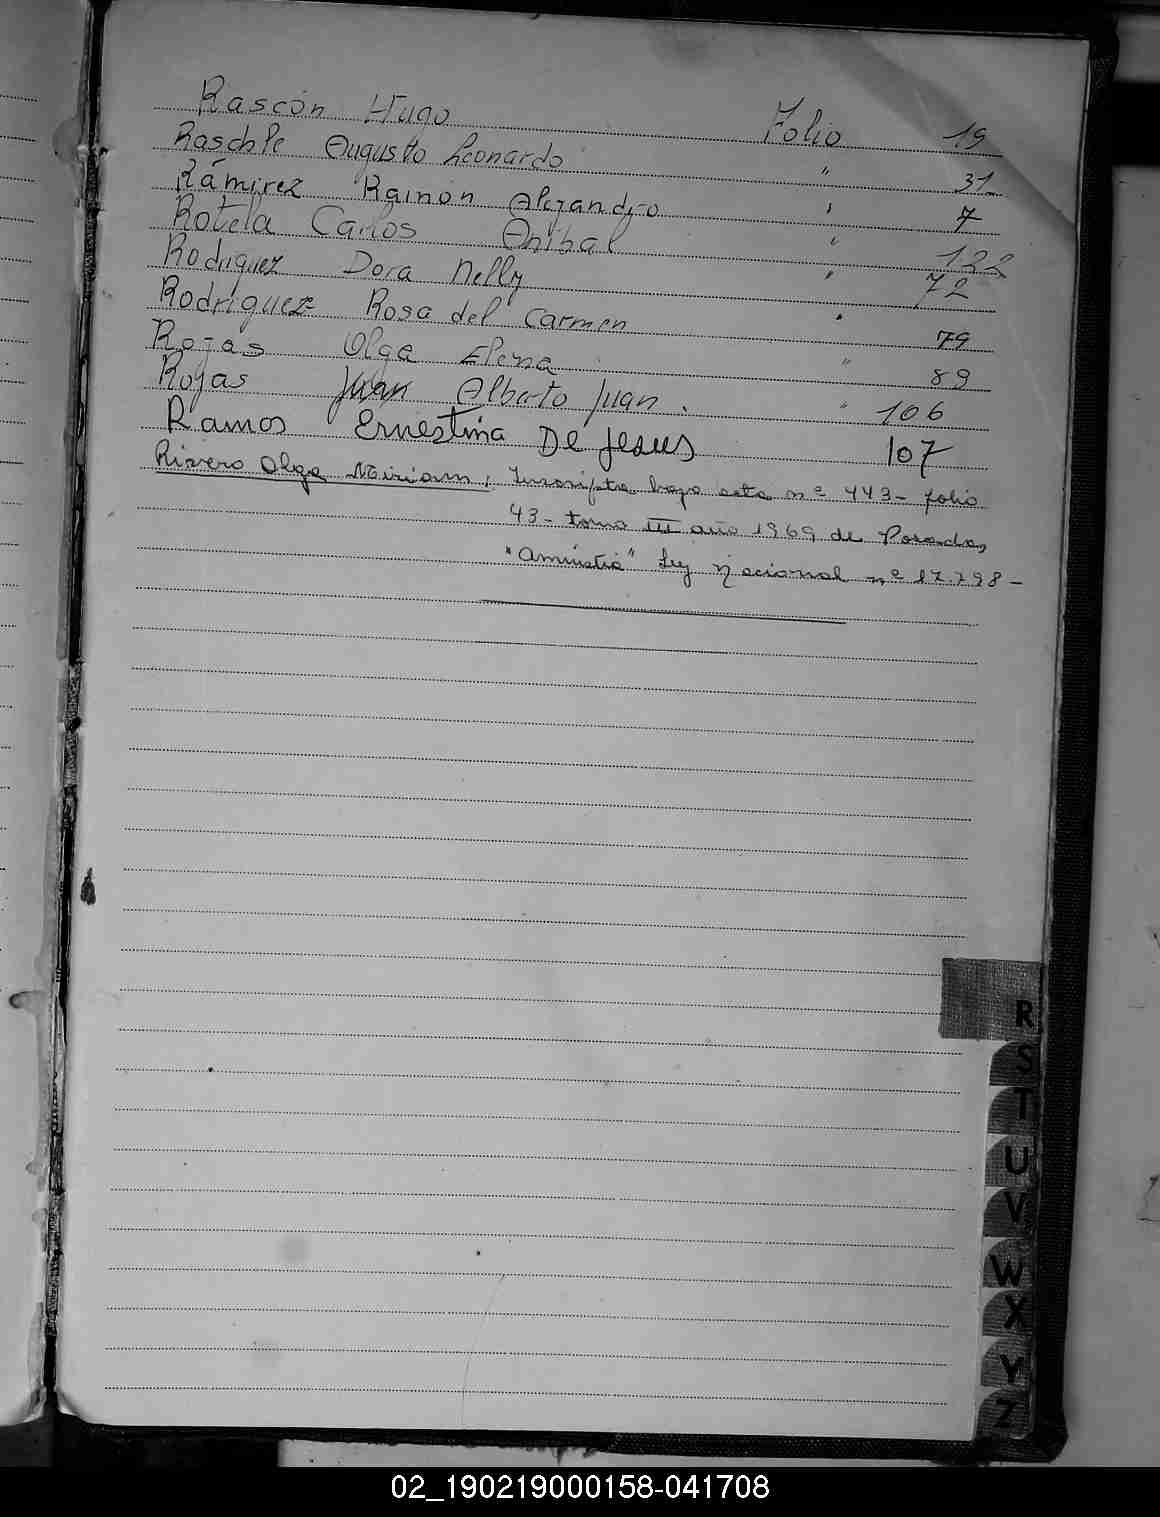 Rascón Hugo Folio 19
Raschle Augusto Leonardo " 31
Rámirez Ramón Alejandro " 7
Rotela Carlos Anibal " 122
Rodriguez Dora Nelly " 72
Rodriguez Rosa del Carmen " 79
Rojas Olga Elena " 89
Rojas Juan Alberto Juan. " 106
Ramos Ernestina De Jesus 107
Rivero Olga Miriam, Inscripta bajo acta nº 443- folio
43- tomo III año 1969 de Posadas,
"Amnistia" Ley Nacional nº 17.798-
R
S
T
U
V
W
X
Y
Z
02_190219000158-041708